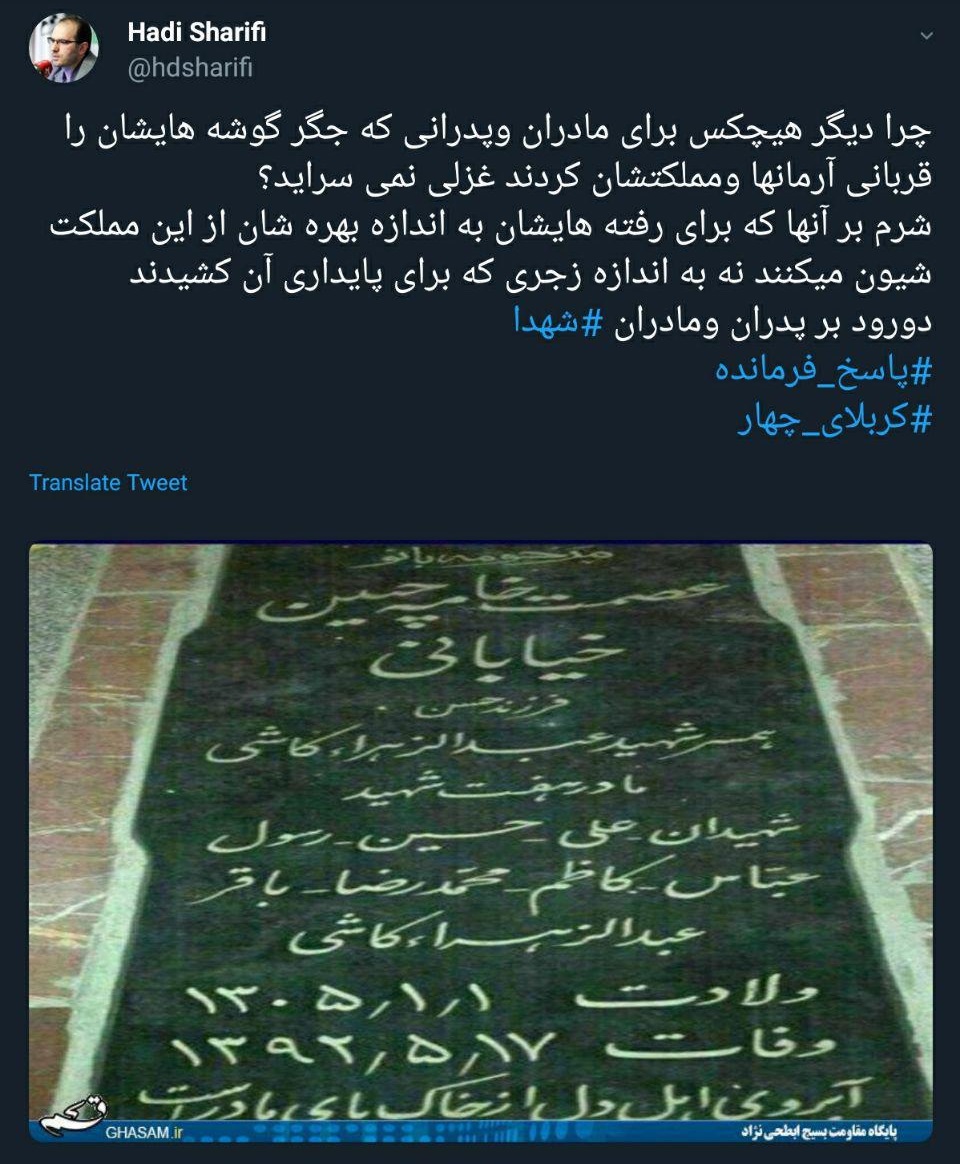 Hadi Sharifi
@hdsharifi
چرا دیگر هیچکس برای مادران وپدرانی که جگر گوشه هایشان را
قربانی آرمانها ومملکتشان کردند غزلی نمی سراید؟
شرم بر آنها که برای رفته هایشان به اندازه بهره شان از این مملکت
شیون میکنند نه به اندازه زجری که برای پایداری آن کشیدند
دورود بر پدران ومادران #شهدا
#پاسخ_فرمانده
#کربلای_چهار
Translate Tweet
مرحومه بانو
عصمت خامه چین
خیابانی
فرزند حسن
همسر شهید عبدالزهراء کاشی
مادر هفت شهید
شهیدان علی - حسین - رسول
عباس - کاظم - محمدرضا - باقر
عبدالزهراء کاشی
ولادت ۱۳۰۵/۱/۱
وفات ۱۳۹۲/۵/۱۷
آبروی اهل دل از خاک پای مادر است
GHASAM.ir
پایگاه مقاومت بسیج ابطحی نژاد